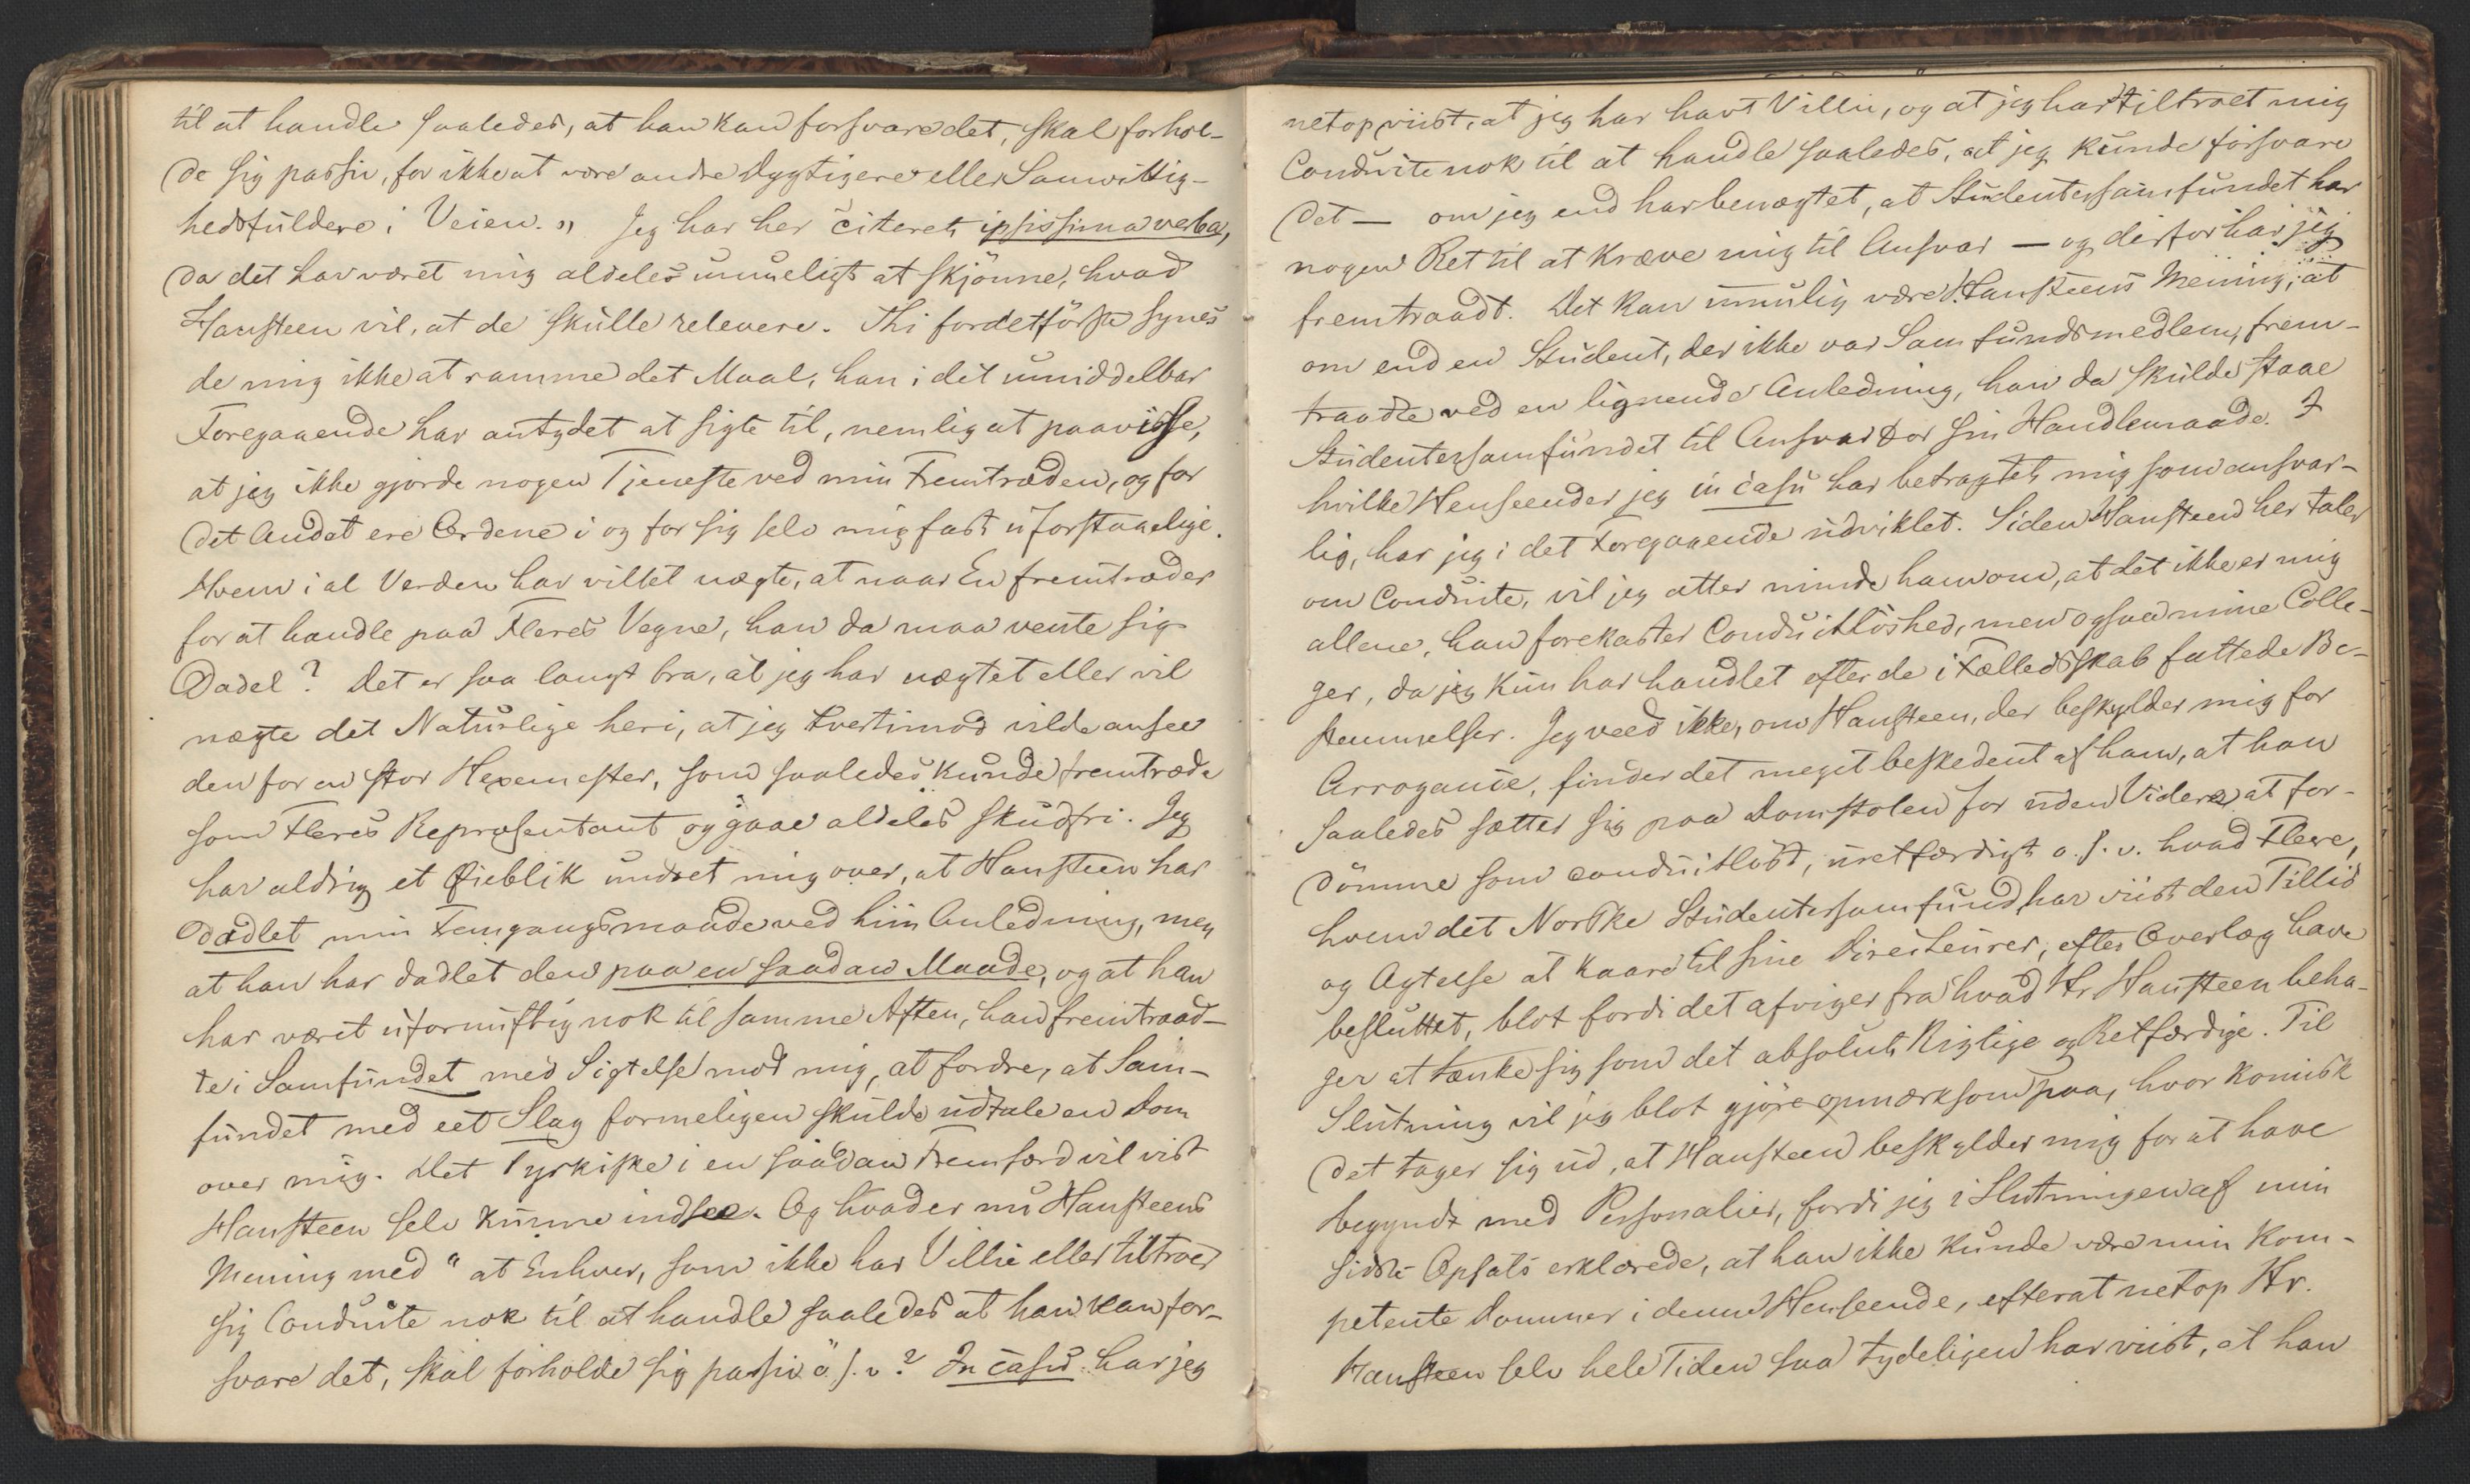 til at handle saaledes, at han kan forsvare det, skal forhol-
de sig passiv, for ikke at være andre Dygtigere eller Samvittig-
hedsfuldere i Veien. „ Jeg har her citeret ipsissima verba,
da det har været mig aldeles umueligt at skjönne, hvad
Hansteen vil, at de skulle relevere. Thi fordetförste synes
de mig ikke at ramme det Maal, han i det umiddelbar
Foregaaende har antydet at sigte til, nemlig at paavise,
at jeg ikke gjorde nogen Tjeneste ved min Fremtræden, og for
det Andet ere Ordene i og for sig selv mig fast uforstaaelige.
Hvem i al Verden har villet nægte, at naar En fremtræder
for at handle paa Fleres Vegne, han da maa vente sig
Dadel? Det er saa langt fra, at jeg har nægtet eller vil
nægte det Naturlige heri, at jeg tvertimod vilde ansee
den for en stor Hexemester, som saaledes kunde fremtræde
som Fleres Repræsentant og gaae aldeles skudfri. Jeg
har aldrig et Øieblik undret mig over, at Hansteen har
dadlet min Fremgangsmaade ved hiin Anledning, men
at han har dadlet den paa en saadan Maade, og at han
har været ufornuftig nok til samme Aften, han fremtraad-
te i Samfundet med Sigtelse mod mig, at fordre, at Sam-
fundet med eet Slag formeligen skulde udtale en Dom
over mig. Det Tyrkiske i en saadan Fremfærd vil vist
Hansteen selv kunne indsee. Og hvad er nu Hansteens
Mening med "at Enhver, som ikke har Villie eller tiltroer
sig Conduite nok til at handle saaledes at han kan for-
svare det, skal forholde sig passiv o. s. v.? In casu har jeg
netop viist, at jeg har havt Villie, og at jeg har tiltroet mig
Conduite nok til at handle saaledes, at jeg kunde forsvare
det — om jeg end har benægtet, at Studentersamfundet har
nogen Ret til at kræve mig til Ansvar — og derfor har jeg
fremtraadt. Det kan umulig være Hansteens Mening, at
om end en Student, der ikke var Samfundsmedlem, frem-
traadte ved en lignende Anledning, han da skulde staae
Studentersamfundet til Ansvar for sin Handlemaade. I
hvilke Henseender jeg in casu har betragtet mig som ansvar-
lig, har jeg i det Foregaaende udviklet. Siden Hansteen her taler
om Conduite, vil jeg atter minde ham om, at det ikke er mig
allene, han forekaster Conduitløshed, men ogsaa mine Colle-
ger, da jeg kun har handlet efter de i Fælledsskab fattede Be-
stemmelser. Jeg veed ikke, om Hansteen, der beskylder mig for
Arrogance, finder det meget beskedent af ham, at han
saaledes sætter sig paa Domstolen for uden Videre, at for-
dömme som conduitløst, uretfærdigt o. s. v. hvad Flere,
hvem det Norske Studentersamfund har viist den Tillid
og Agtelse at kaare til sine Directeurer, efter Overlæg have
besluttet, blot fordi det afviger fra hvad Hr. Hansteen beha-
ger at tænke sig som det absolut Rigtige og Retfærdige. Til
Slutning vil jeg blot gjöre opmærksom paa, hvor komisk
det tager sig ud, at Hansteen beskylder mig for at have
begyndt med Personalier, fordi jeg i Slutningen af min
sidste Opsats erklærede, at han ikke kunde være min kom-
petente Dommer i denne Henseende, efterat netop Hr.
Hansteen selv hele Tiden saa tydeligen har viist, at han